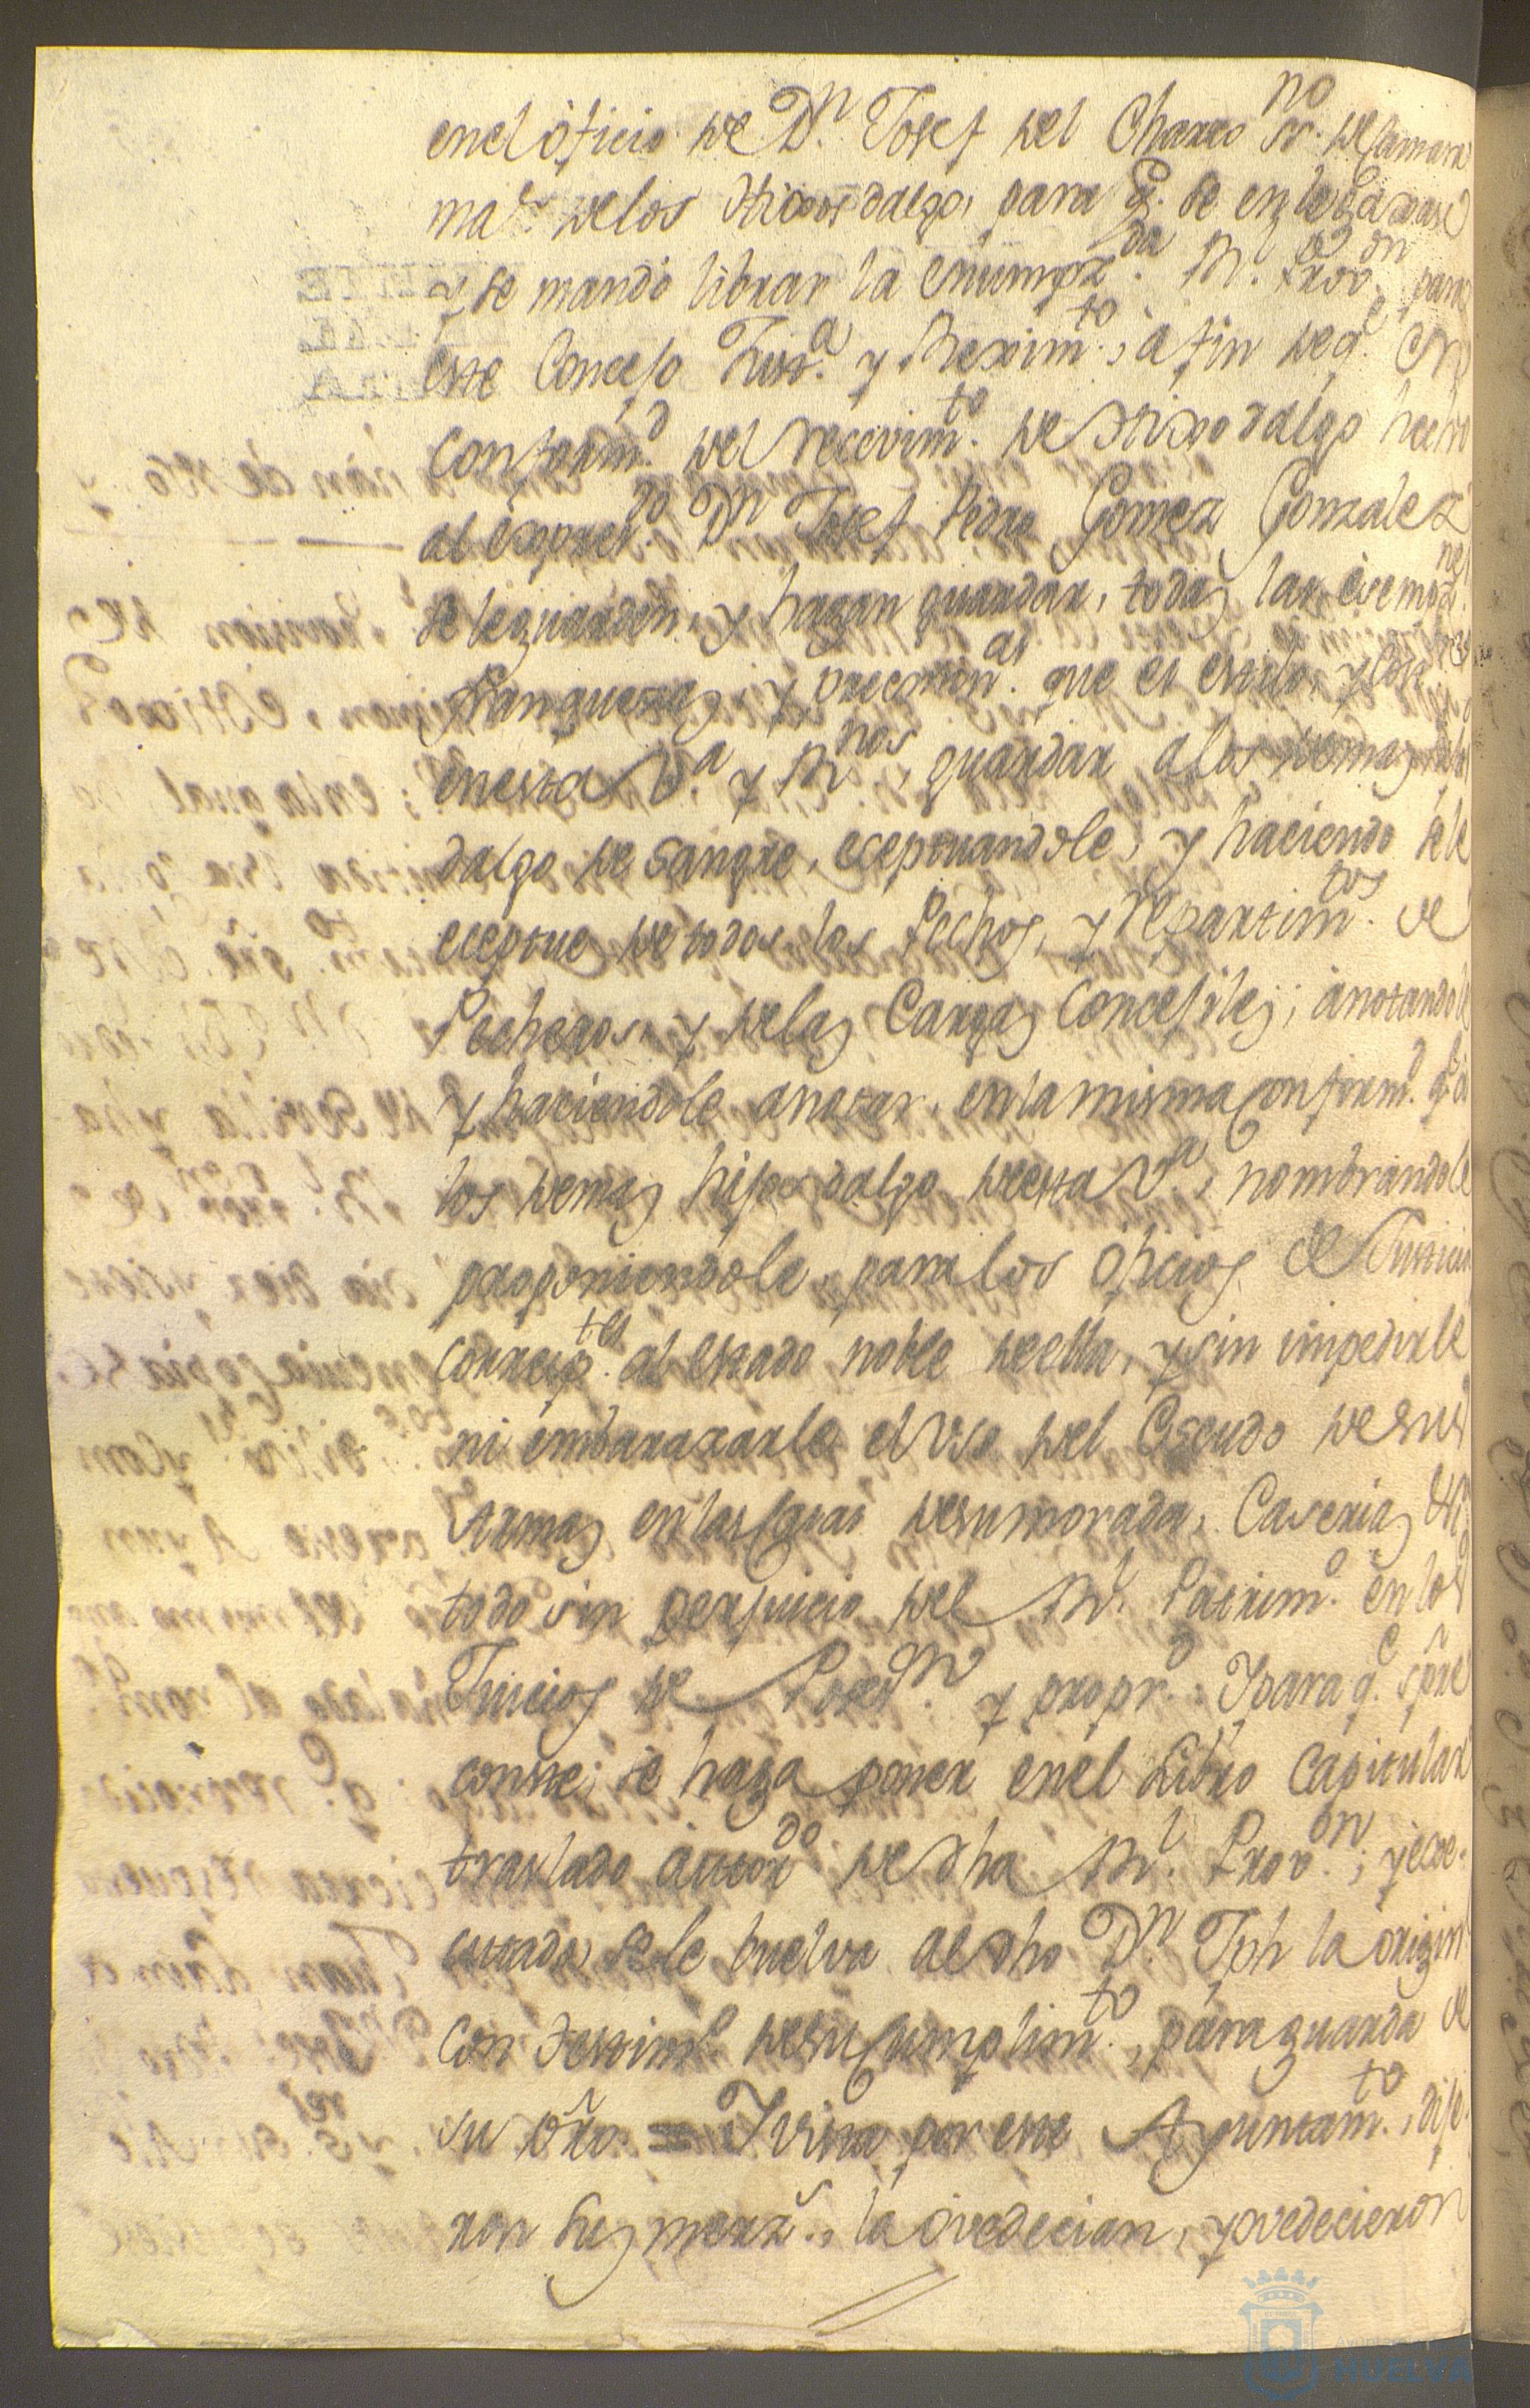 en el oficio de Dn. Josef del Charco ss.no de Camara
mar. de los Hixosdalgo, para q. se
y se mandò librar la enumpz.da Rl. Prov.on para
este Concejo Just.a y Reximto., à fin de q.e en
conformd. del recevimto. de Hixodalgo hecho
al expresdo. Dn Josef Pedro Gomez Gonzalez
se le guarden, y hagan guardar, todas las exempz.nes
franquezas, y preemin.as que es estilo, y
en esta V.a y Rnos, guardar a los demas hijos
dalgo de sangre, eceptuandole, y haciendo se le
eceptue de todos los Pechos, y repartimtos. de
Pecheros, y de las Cargas Concejiles; ànotandole
y haciendole anotar, en la misma conformd. q.e à
los demas hijosdalgo de esta Va, nombrandole
proponiendole, para los oficios de Justicia
correspo.tes al estado noble de ella, y sin impedirle
ni embarazarle el Uso del Escudo de sus
Armas en las casas de su morada, Caserias &a
todo sin perjuicio del Rl. Patrimo. en los
Juicios de Poseson. y propr.d Y para q.e spre
conste; se haga poner en el Libro Capitular
traslado àutor.do de dha Rl. Prov.on; y èxe-
cutado se le buelva al dho Dn Jph la origin.l
con testimo. de su Cumplimto., para guarda de
su dro. = Y vista por este Ayuntamto., dije-
ron sus merzs., la ovedecian, y ovedecieron
HUELVA